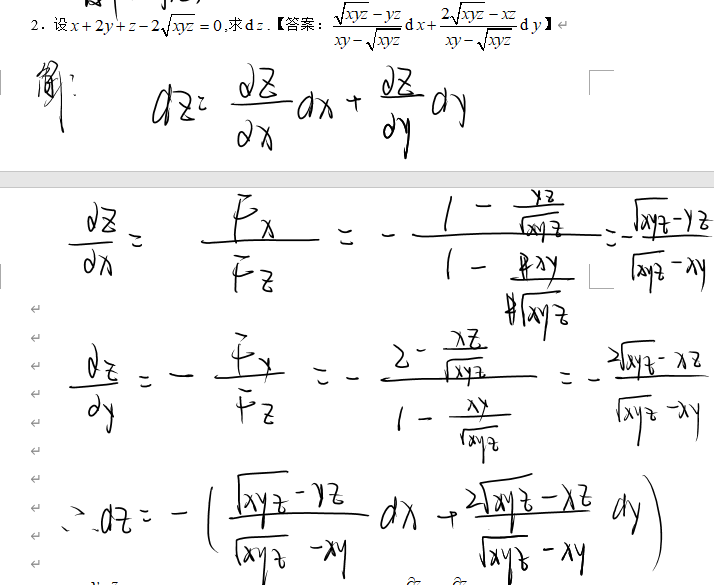 2. 设 x + 2y + z − 2√(xyz) = 0,求 d z .【答案: (√(xyz) − yz)/(xy − √(xyz)) d x + (2√(xyz) − xz)/(xy − √(xyz)) d y】
解: dz = ∂z/∂x dx + ∂z/∂y dy
∂z/∂x = Fx/Fz = − (1 − yz/√(xyz))/(1 − xy/√(xyz)) = − (√(xyz) − yz)/(√(xyz) − xy)
∂z/∂y = − Fy/Fz = − (2 − xz/√(xyz))/(1 − xy/√(xyz)) = − (2√(xyz) − xz)/(√(xyz) − xy)
∴ dz = − ( (√(xyz) − yz)/(√(xyz) − xy) dx + (2√(xyz) − xz)/(√(xyz) − xy) dy )